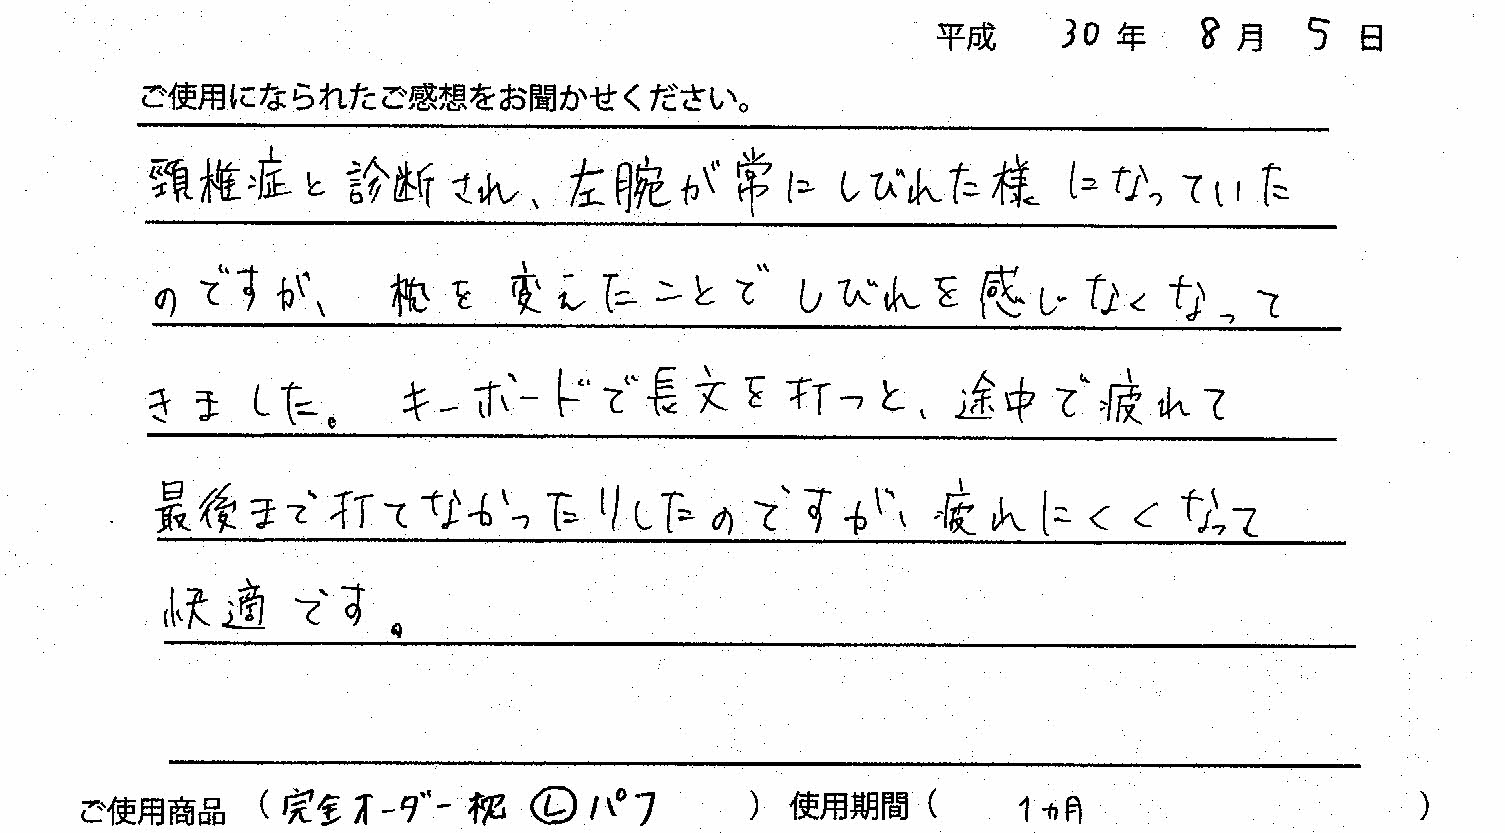 平成 30年 8月 5日
ご使用になられたご感想をお聞かせください。
頸椎症と診断され、左腕が常にしびれた様になっていた
のですが、枕を変えたことでしびれを感じなくなって
きました。キーボードで長文を打つと、途中で疲れて
最後まで打てなかったりしたのですが、疲れにくくなって
快適です。
ご使用商品 (完全オーダー枕 Ⓛパフ ) 使用期間( 1ヵ月 )